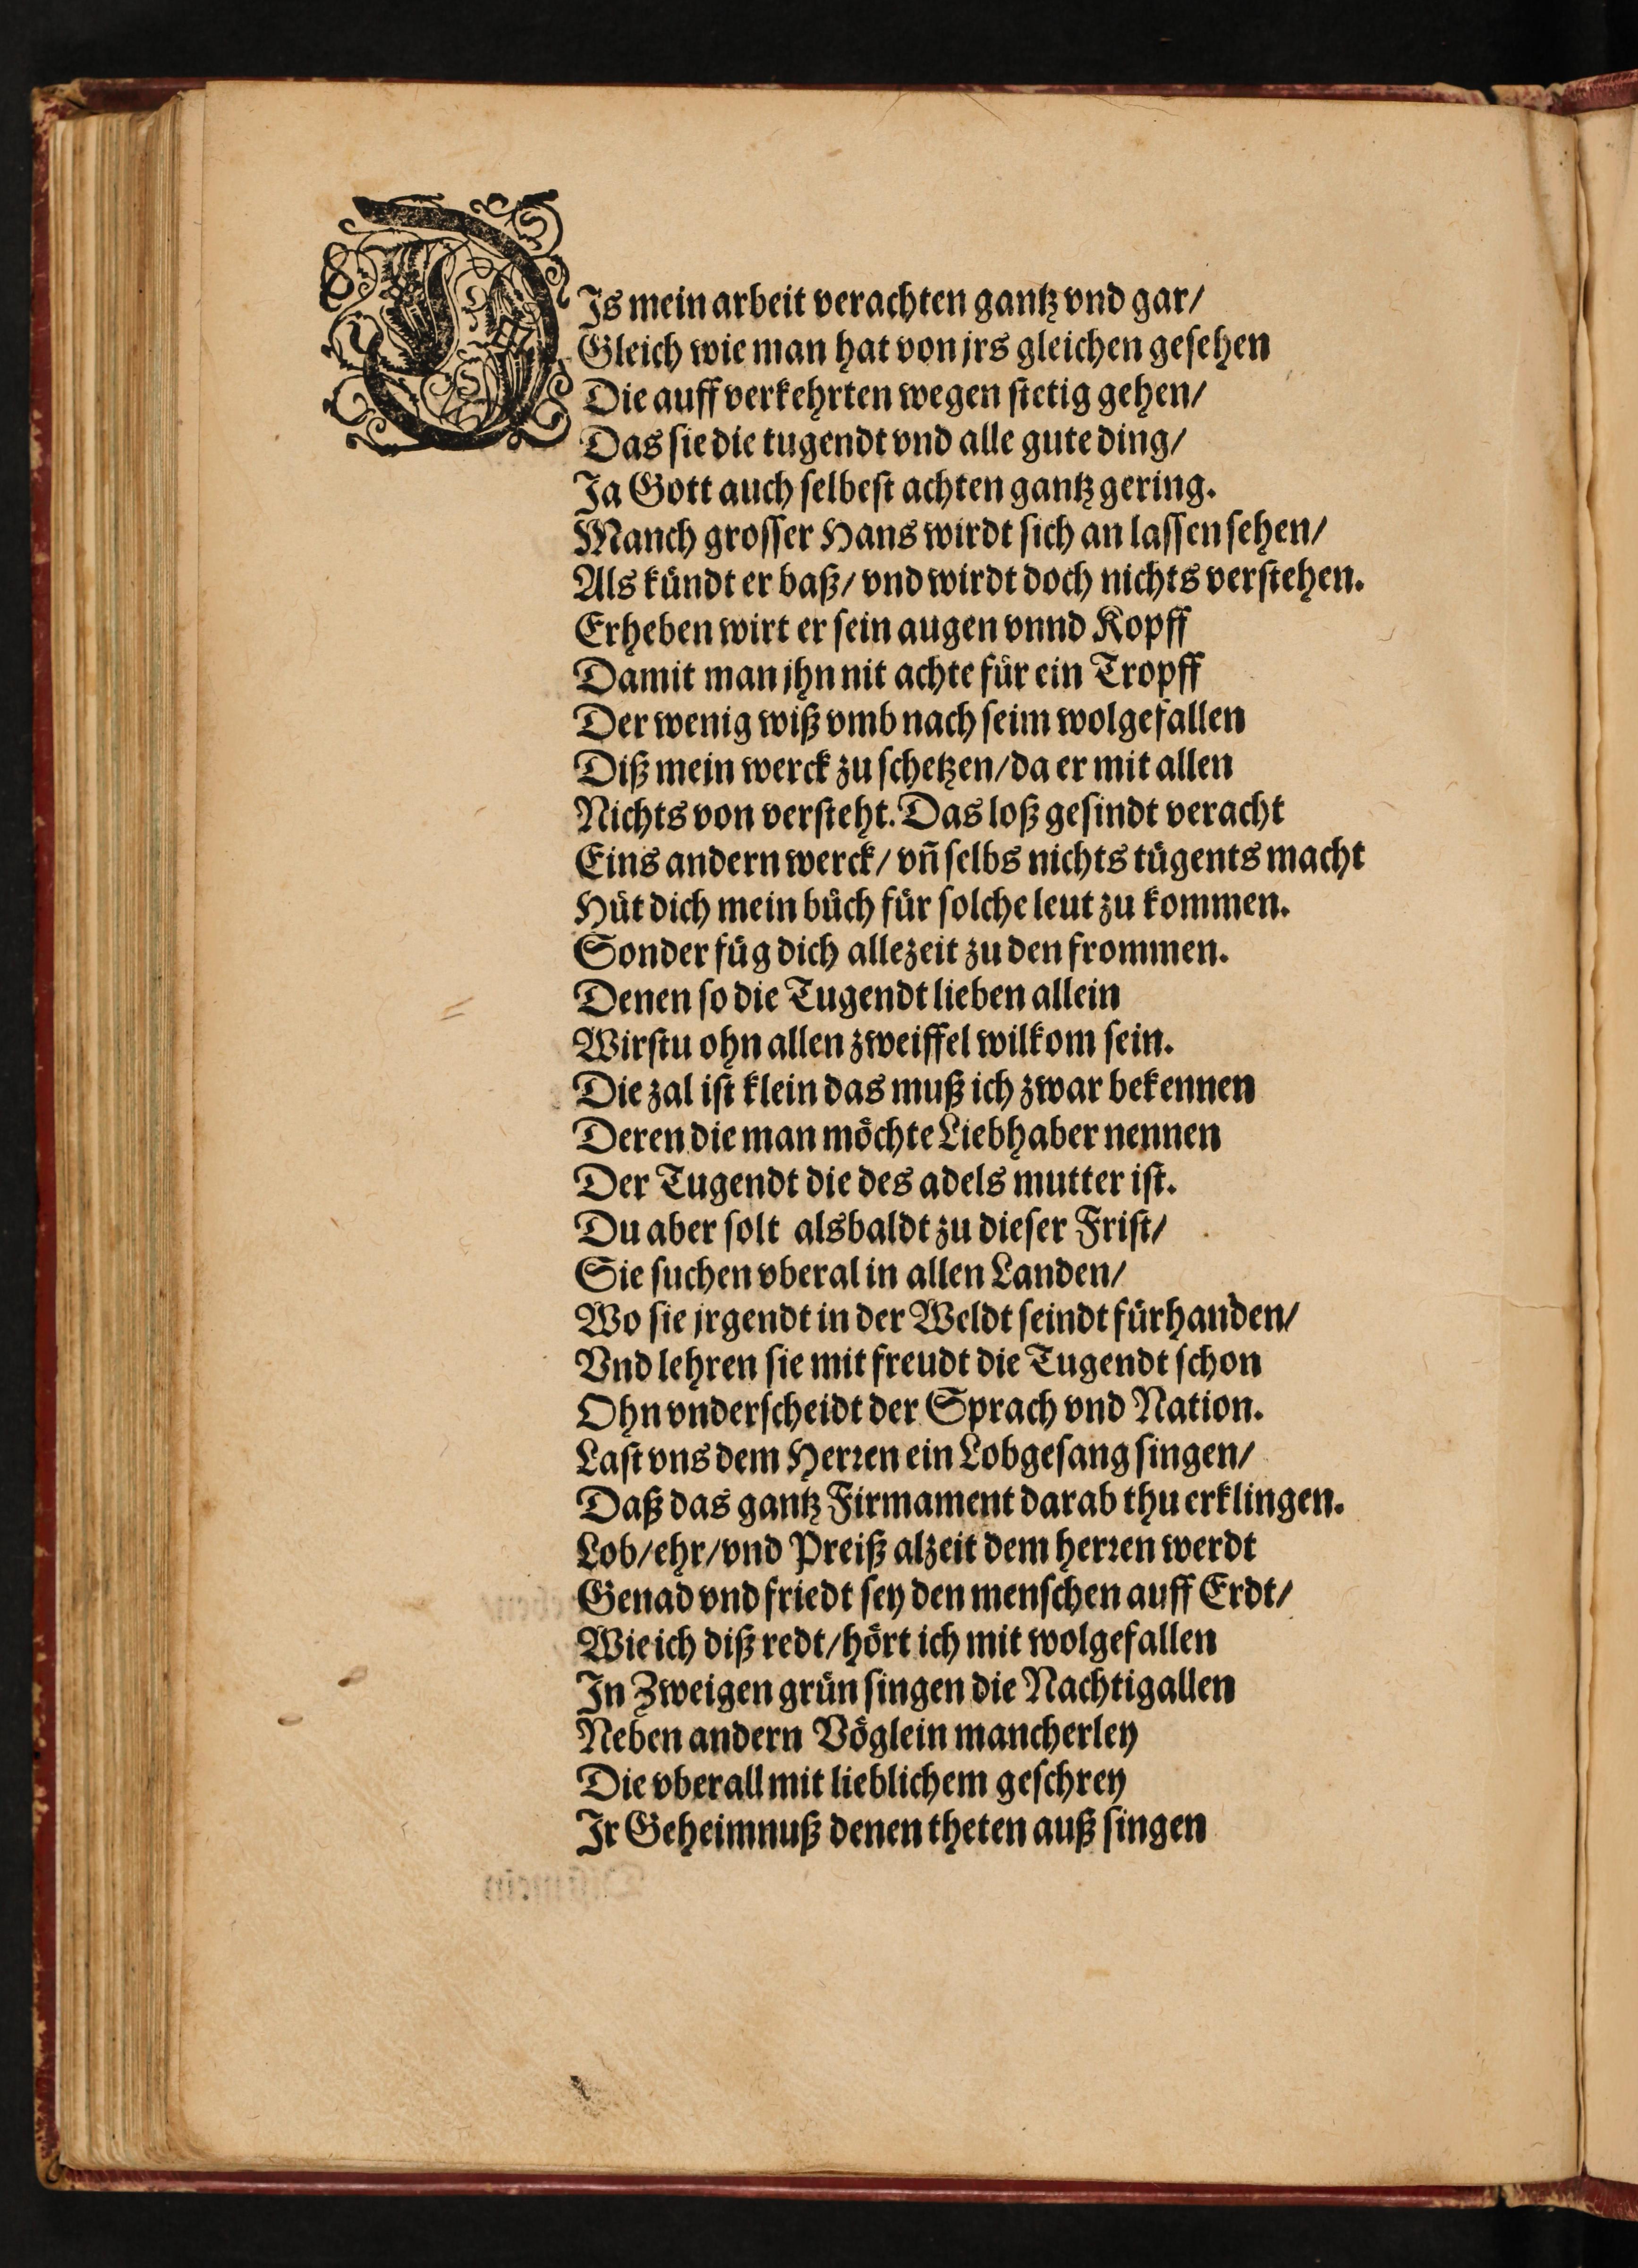 DIs mein arbeit verachten gantz vnd gar/
Gleich wie man hat von jrs gleichen gesehen
Die auff verkehrten wegen stetig gehen/
Das sie die tugendt vnd alle gute ding/
Ja Gott auch selbest achten gantz gering.
Manch grosser Hans wirdt sich an lassen sehen/
Als kündt er baß/ vnd wirdt doch nichts verstehen.
Erheben wirt er sein augen vnnd Kopff
Damit man jhn nit achte für ein Tropff
Der wenig wiß vmb nach seim wolgefallen
Diß mein werck zu schetzen/ da er mit allen
Nichts von versteht. Das loß gesindt veracht
Eins andern werck/ vñ selbs nichts tügents macht
Hüt dich mein büch für solche leut zu kommen.
Sonder füg dich allezeit zu den frommen.
Denen so die Tugendt lieben allein
Wirstu ohn allen zweiffel wilkom sein.
Die zal ist klein das muß ich zwar bekennen
Deren die man möchte Liebhaber nennen
Der Tugendt die des adels mutter ist.
Du aber solt alsbaldt zu dieser Frist/
Sie suchen vberal in allen Landen/
Wo sie jrgendt in der Weldt seindt fürhanden/
Vnd lehren sie mit freudt die Tugendt schon
Ohn vnderscheidt der Sprach vnd Nation.
Last vns dem Herren ein Lobgesang singen/
Daß das gantz Firmament darab thu erklingen.
Lob/ ehr/ vnd Preiß alzeit dem herren werdt
Genad vnd friedt sey den menschen auff Erdt/
Wie ich diß redt/ hört ich mit wolgefallen
In Zweigen grün singen die Nachtigallen
Neben andern Vöglein mancherley
Die vberall mit lieblichem geschrey
Ir Geheimnuß denen theten auß singen